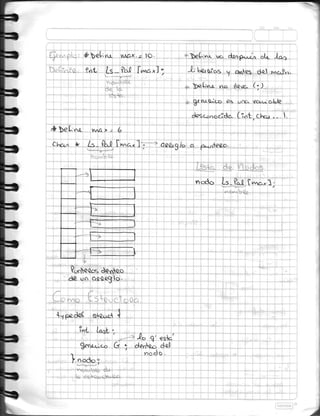 Ejemplo: #Define max = 10
Definir. int Ls_Pal [max];
nombre
de la
lista
* Define va después de las
librerías y antes del main.
* Define no lleva (;)
* generico es una variable
desconocida (int, char...).
# Define max = 6
Char * Ls_Pal [max]; → arreglo a puntero
nombre
Lista de Nodos
nodo Ls_Pal [max];
nombre
Punteros dentro
de un arreglo
Como Estructura
typedef struct {
int last;
generico G;
} nodo;
lo q' esta
dentro del
nodo.
nombre de
la estructura